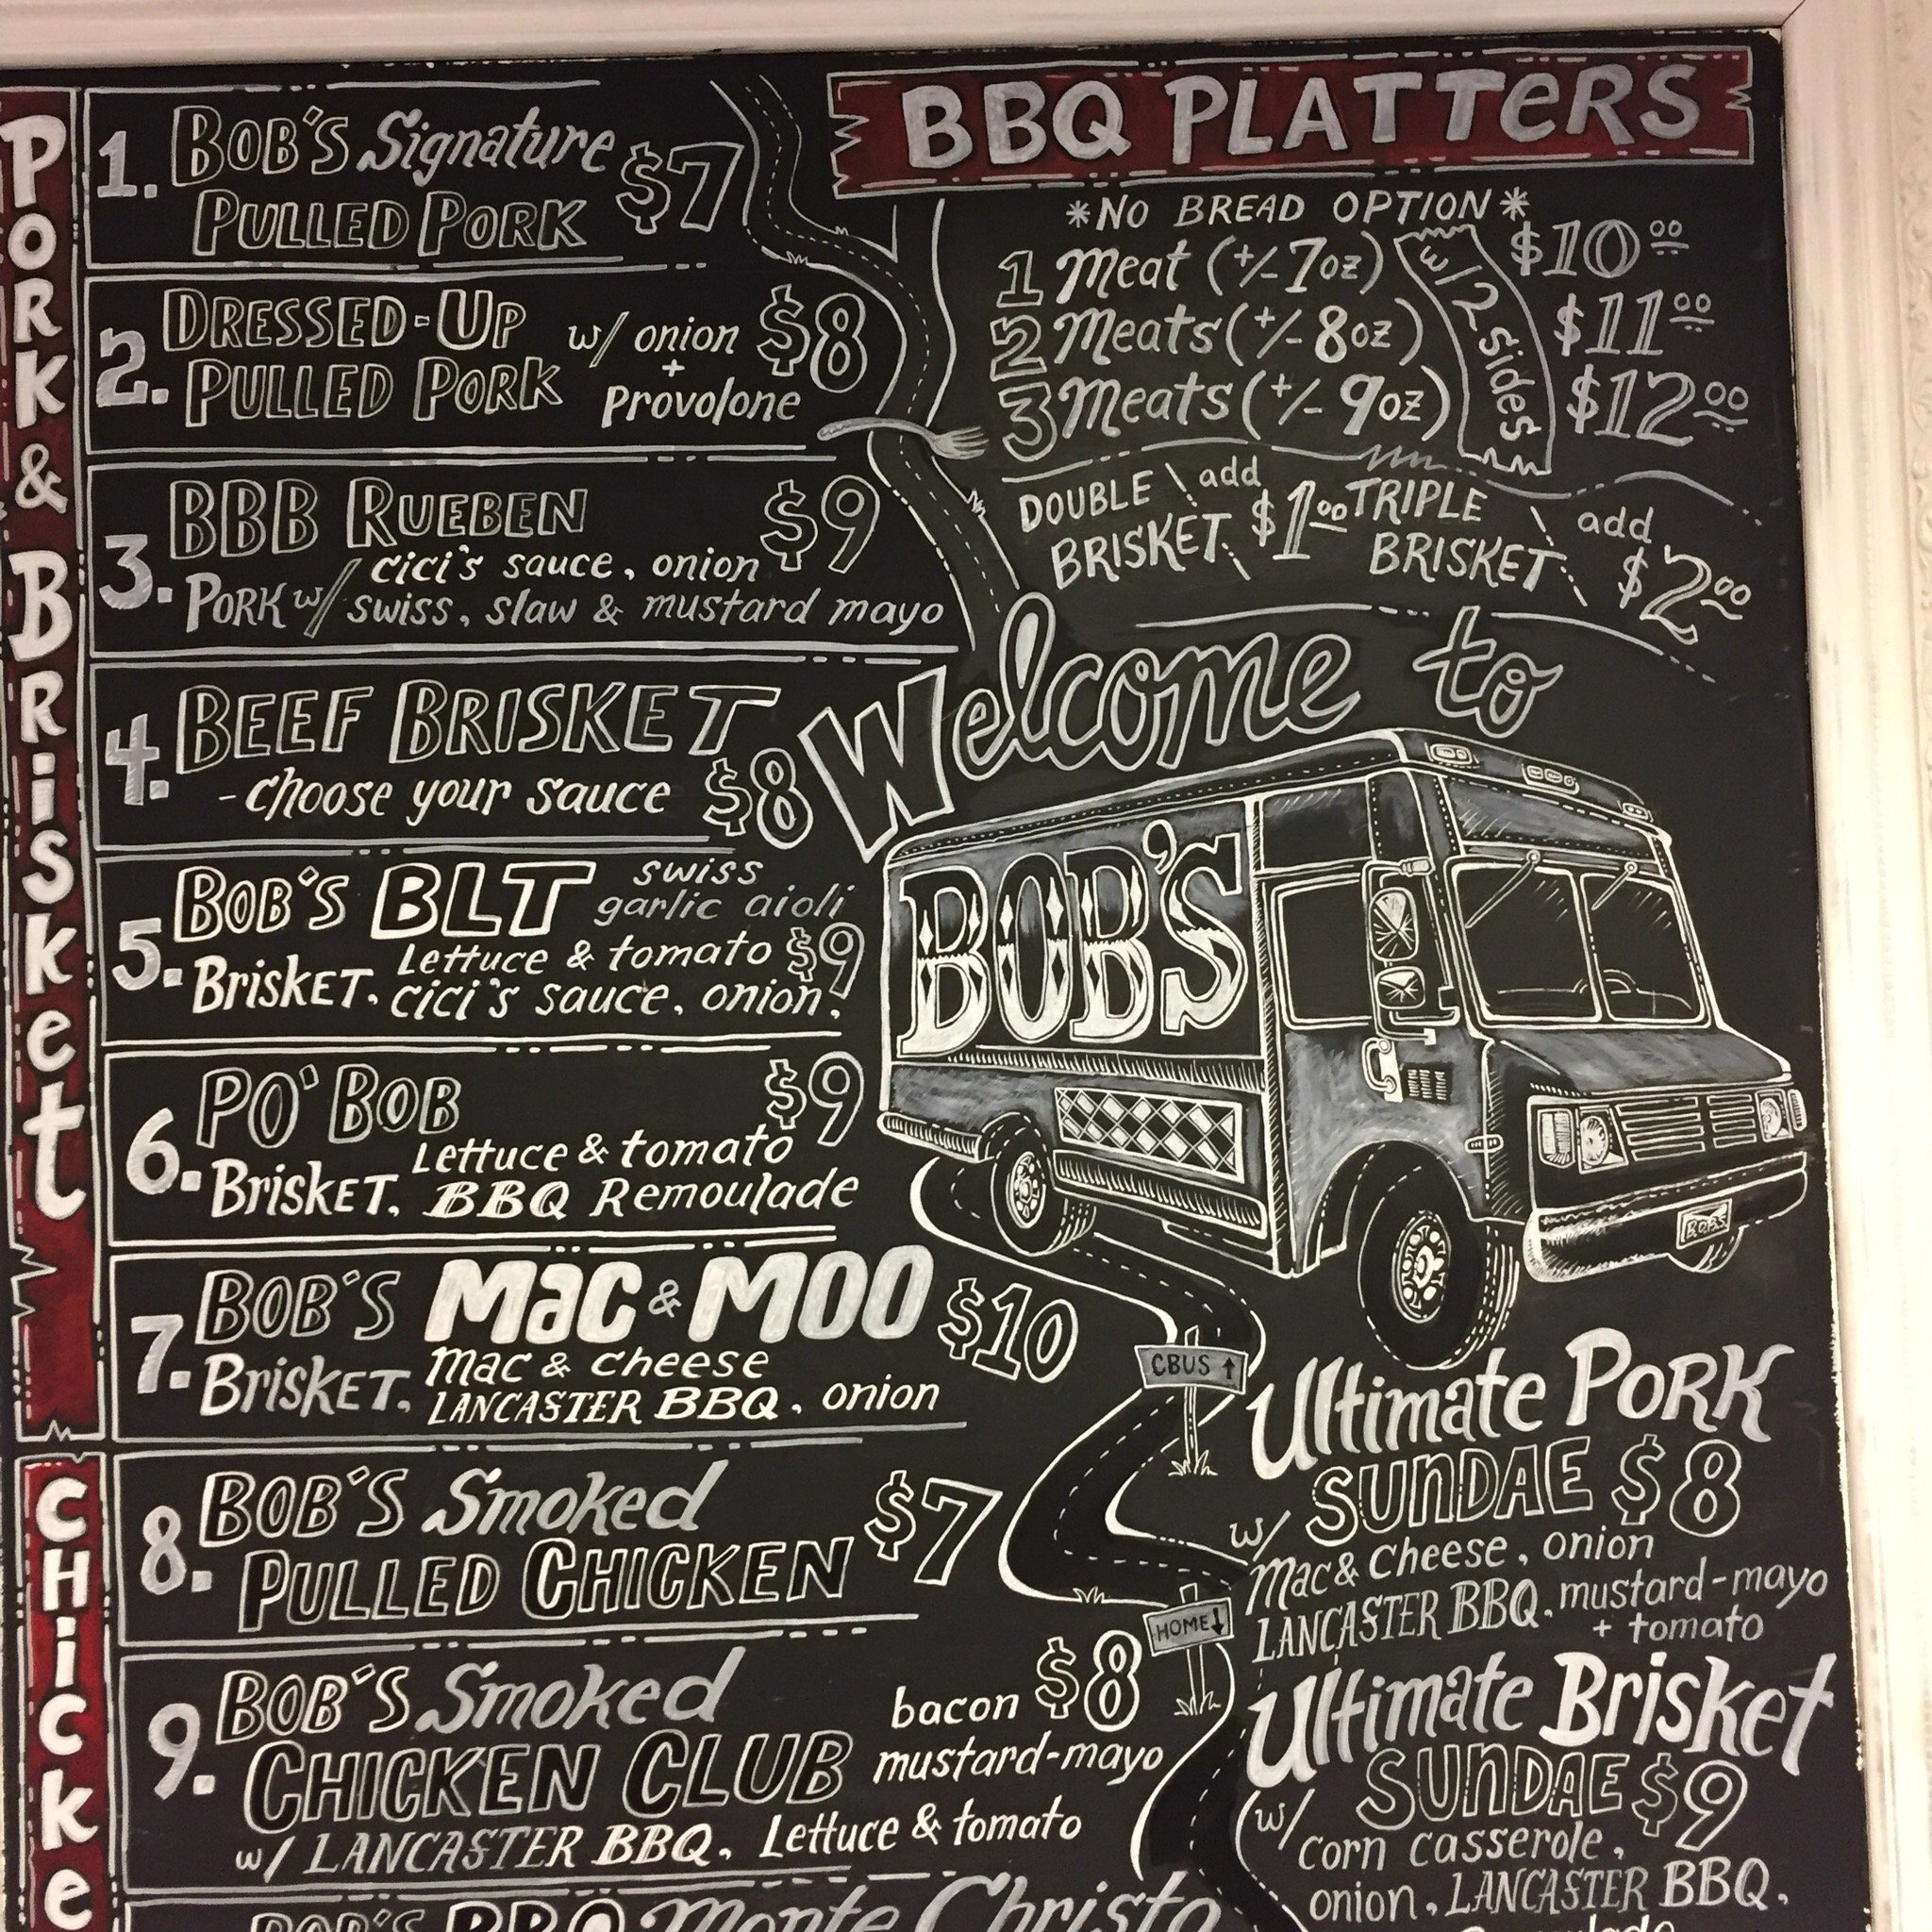 PORK & BRISKET
1. BOB'S Signature
PULLED PORK $7
2. DRESSED-UP
PULLED PORK
w/ onion
+
Provolone
$8
3. BBB RUEBEN $9
PORK w/ cici's sauce, onion
swiss, slaw & mustard mayo
4. BEEF BRISKET
- choose your sauce $8
5. BOB'S BLT
swiss
garlic aioli
Brisket, Lettuce & tomato $9
cici's sauce, onion,
6. PO' BOB $9
Brisket, Lettuce & tomato
BBQ Remoulade
7. BOB'S Mac & MOO $10
Brisket, mac & cheese
LANCASTER BBQ, onion
CHICKE
8. BOB'S Smoked
PULLED CHICKEN $7
9. BOB'S Smoked
CHICKEN CLUB
bacon $8
mustard-mayo
w/ LANCASTER BBQ, Lettuce & tomato
BOB'S BBQ Monte Christo
BBQ PLATTERS
*NO BREAD OPTION*
1 Meat (+/- 7oz) $10.00
2 Meats (+/- 8oz) $11.00
3 Meats (+/- 9oz) $12.00
w/ 2 sides
DOUBLE BRISKET \ add $1.00
TRIPLE BRISKET \ add $2.00
Welcome to
BOB'S
BOBS
CBUS ↑
HOME ↓
Ultimate PORK
SUNDAE $8
w/ Mac & Cheese, onion
LANCASTER BBQ, mustard-mayo
+ tomato
Ultimate Brisket
SUNDAE $9
w/ corn casserole,
onion, LANCASTER BBQ,